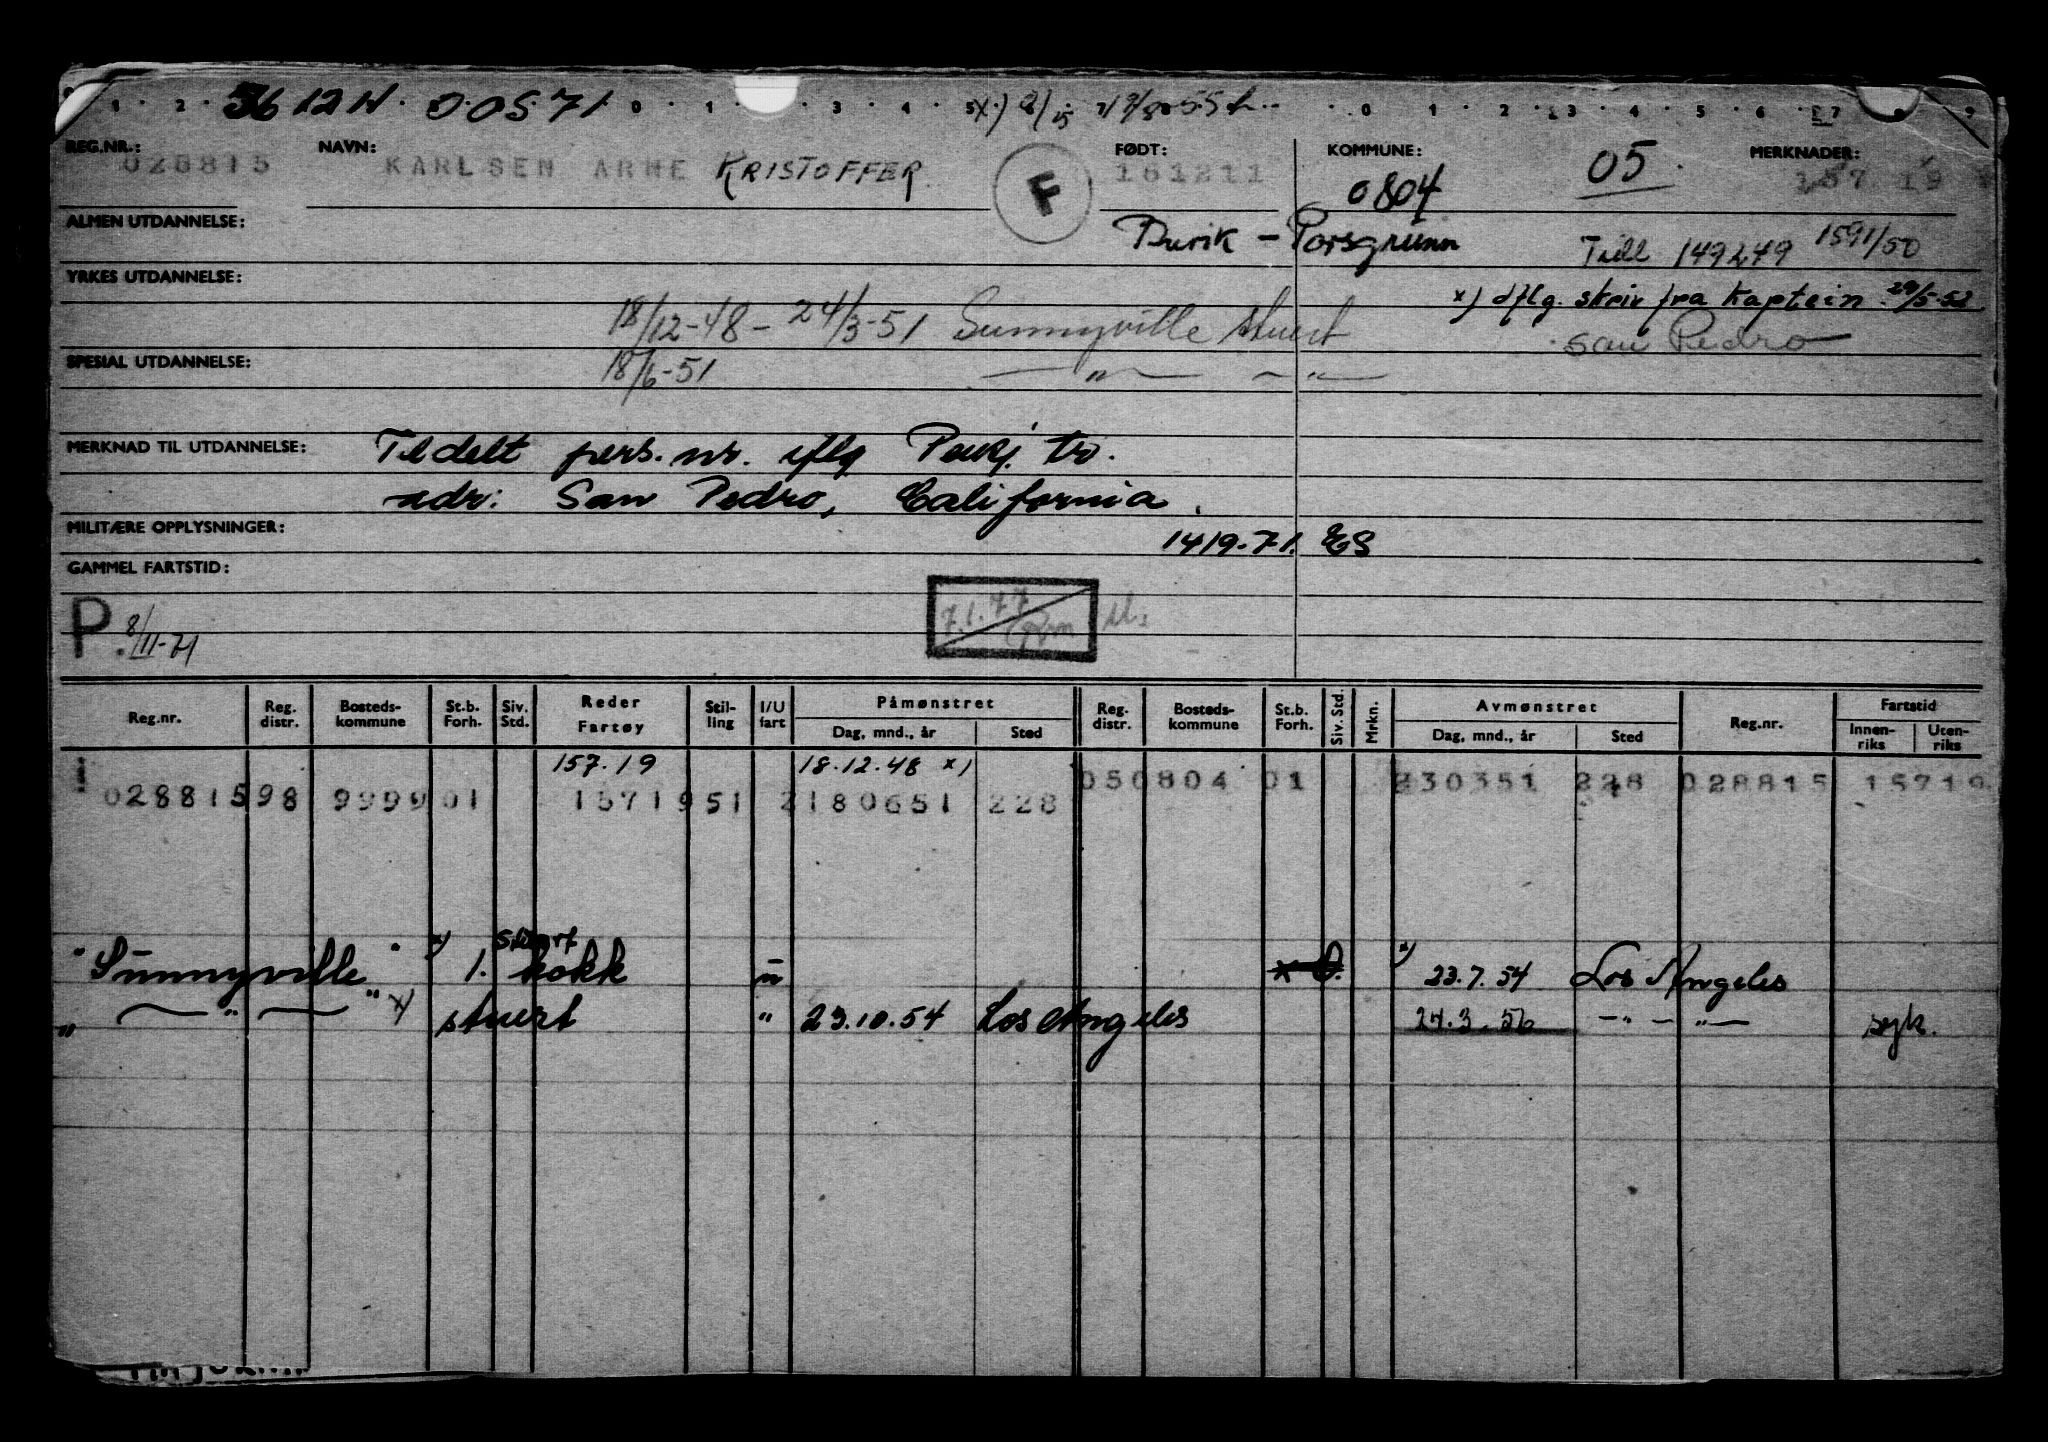 5612N 00571 x)
REG.NR.: NAVN: FØDT: KOMMUNE: 05 MERKNADER:
028815 KARLSEN ARNE KRISTOFFER F 161211 0804 157 19
ALMEN UTDANNELSE: - Porsgrunn Till 149249 1591/50
YRKES UTDANNELSE: x) iflg. skriv fra Kaptein 29/5-52
18/12-48 - 24/3-51 Sunnyville stuert San Pedro
SPESIAL UTDANNELSE: 18/6-51 — " — — " —
MERKNAD TIL UTDANNELSE: Tildelt pers.nr. iflg tr.
adr: San Pedro, California.
MILITÆRE OPPLYSNINGER: 1419-71. ES
GAMMEL FARTSTID:
P. 8/11-71 7.1.77
Reg.nr. Reg. distr. Bosteds-kommune St.b. Forh. Siv. Std. Reder Fartøy Stil-ling I/U fart Påmønstret Dag, mnd., år Sted Reg. distr. Bosteds-kommune St.b. Forh. Siv. Std. Mrkn. Avmønstret Dag, mnd., år Sted Reg.nr. Fartstid Innen-riks Uten-riks
157.19 18.12.48 x) 050804 01 230351 228 028815 15719
02881598 9999 01 15719 51 2180651 228
"Sunnyville" x) 1. stuert kokk u x) 23.7.54 Los Angeles
" — " — " x) stuert " 23.10.54 Los Angeles 24.3.56 — " — " — syk.